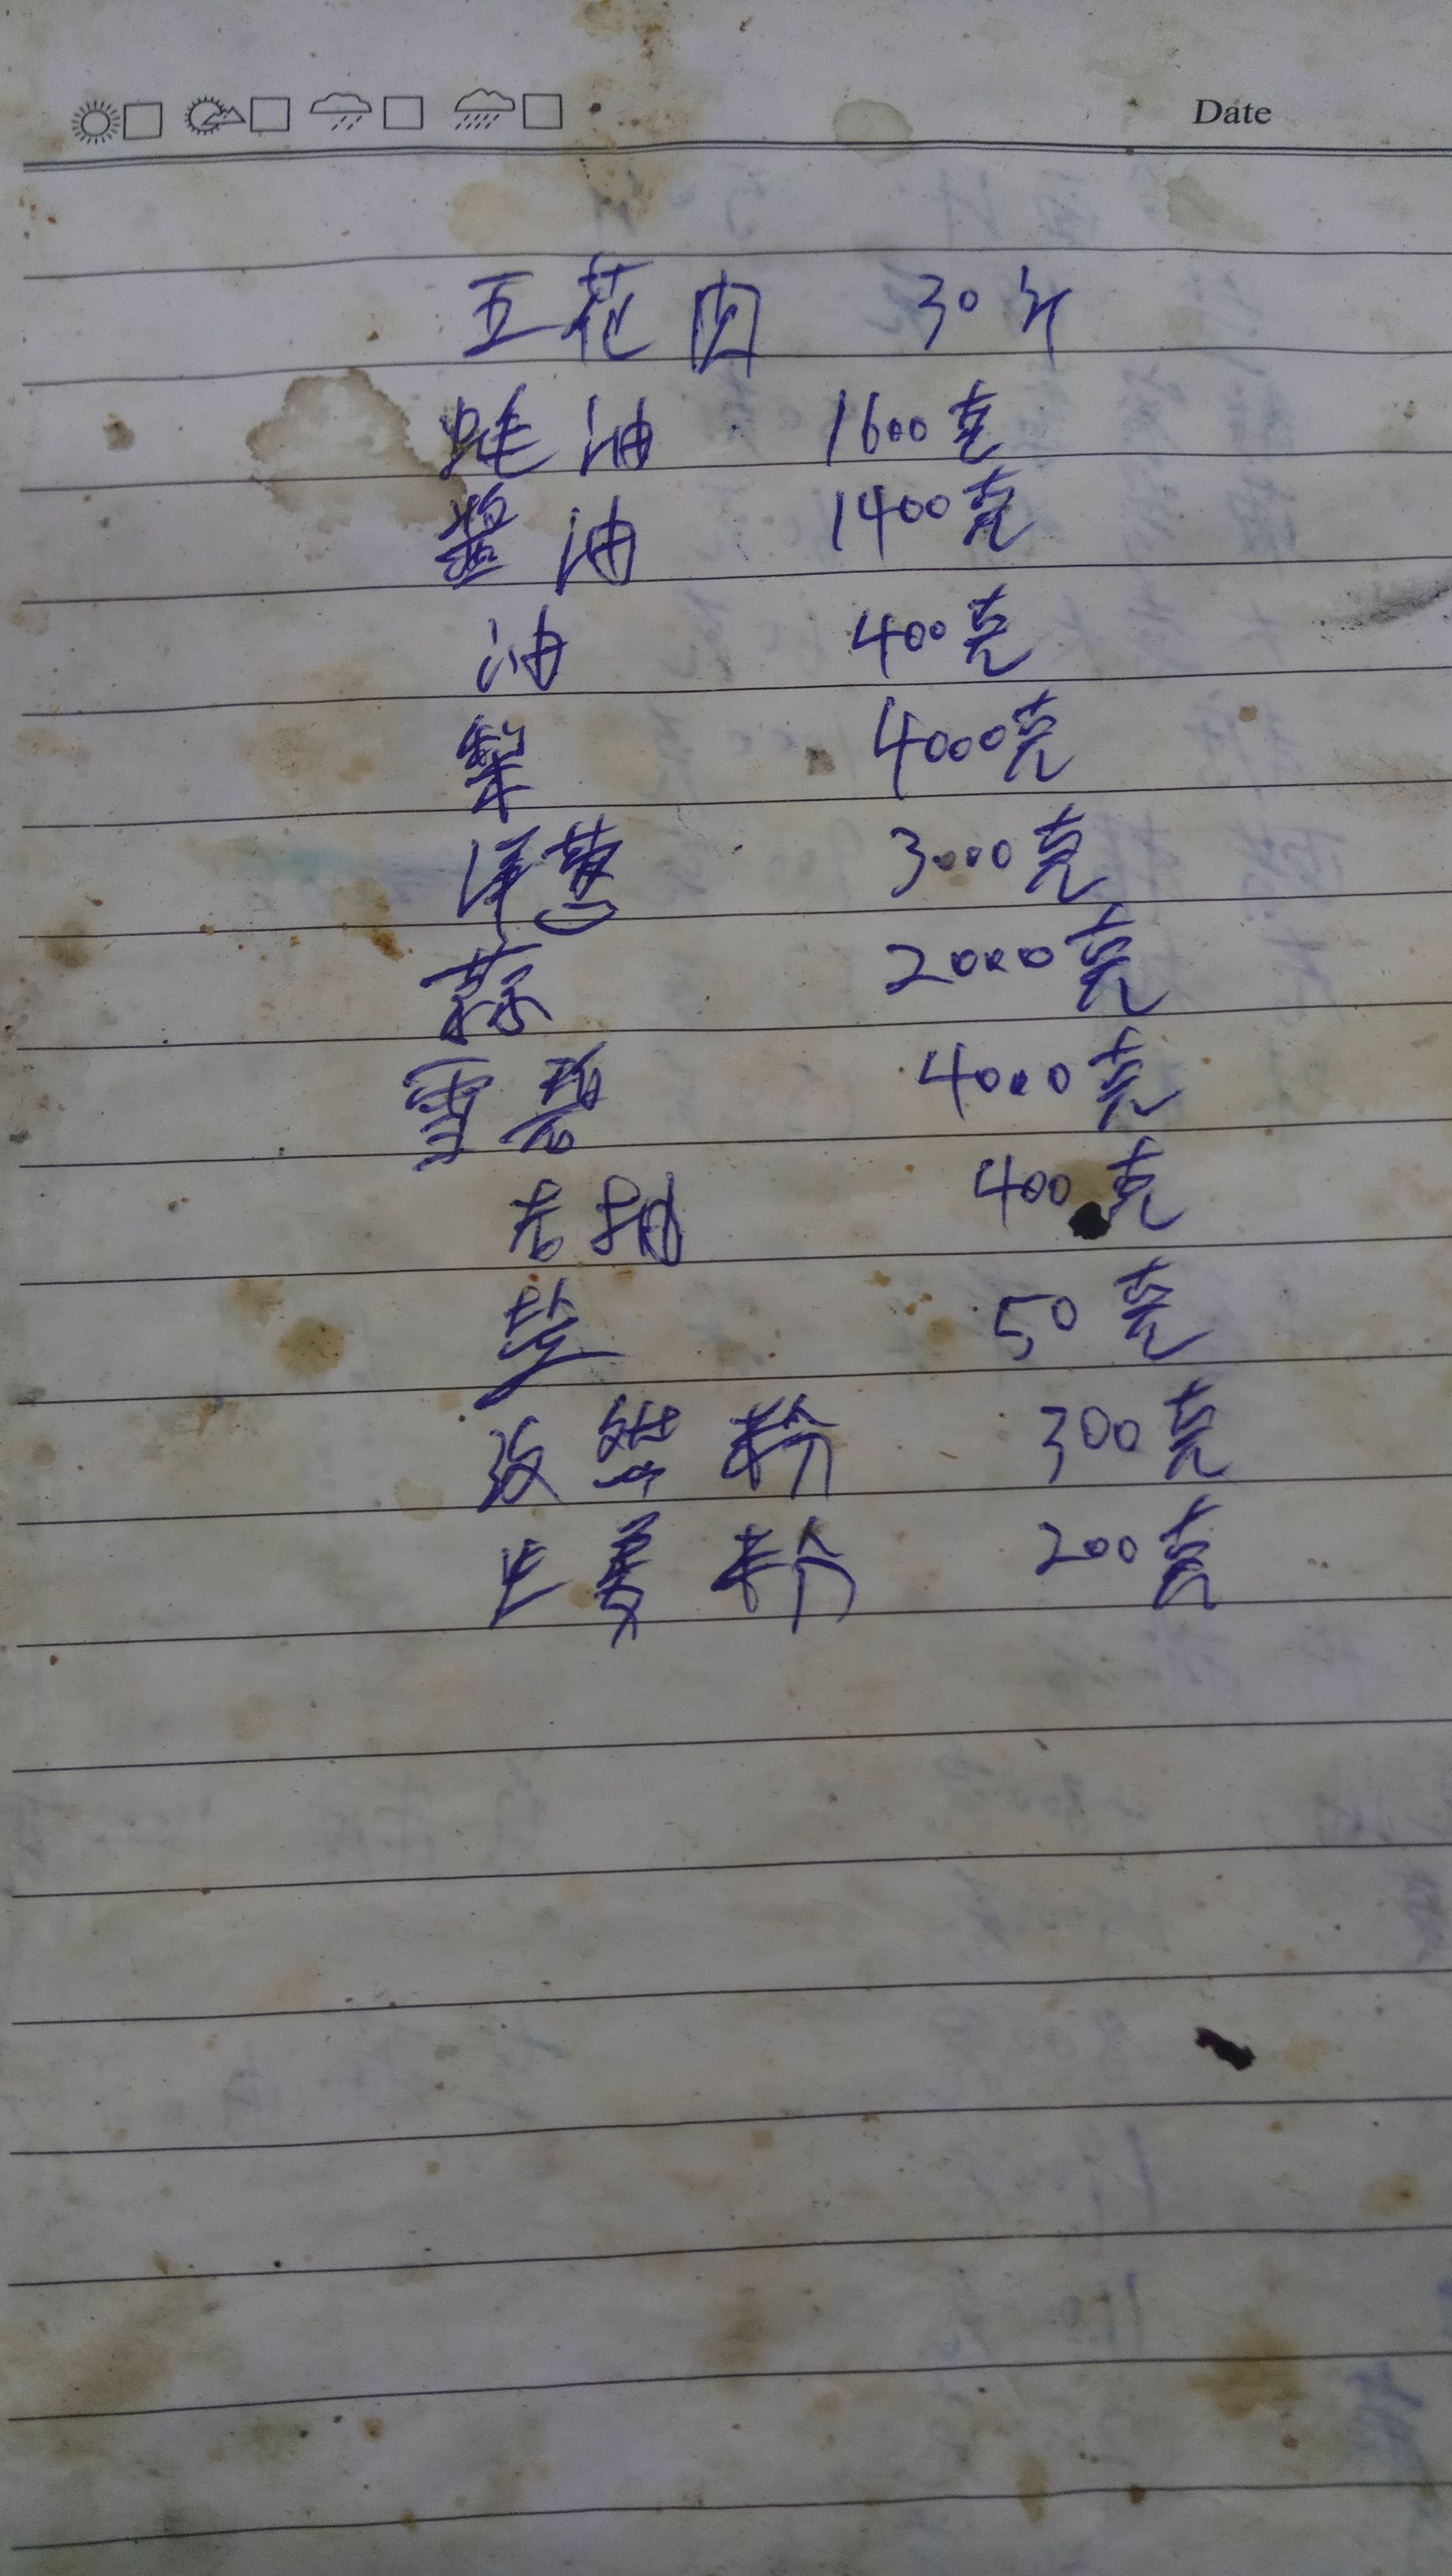 Date
五花肉 30斤
蚝油 1600克
酱油 1400克
油 400克
梨 4000克
洋葱 3000克
蒜 2000克
雪碧 4000克
老抽 400克
盐 50克
孜然粉 300克
姜粉 200克